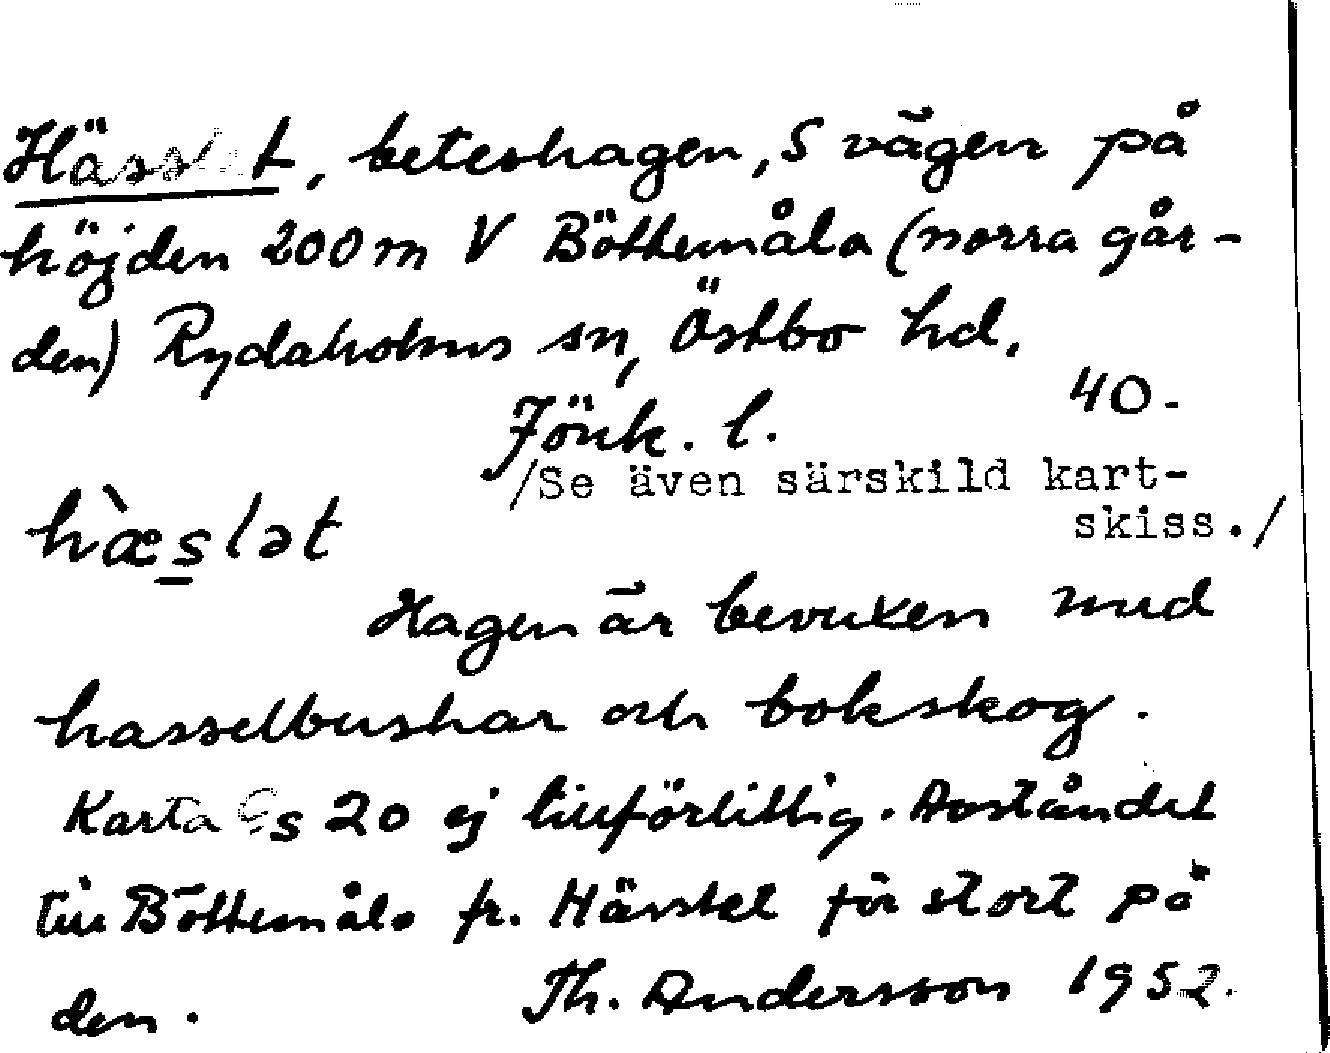 Hässlet, beteshagen, S vägen på
höjden 200 m V Böttemåla (norra går-
den) Rydaholms sn, Östbo hd.
Jönk. l. 40-
/Se även särskild kart-
skiss./
hæ̀slət
Hagen är bevuxen med
hasselbuskar och bokskog.
Karta Gs 20 ej tillförlitlig. Avståndet
till Böttemåla fr. Hässlet för stort på
den. Th. Andersson 1952.